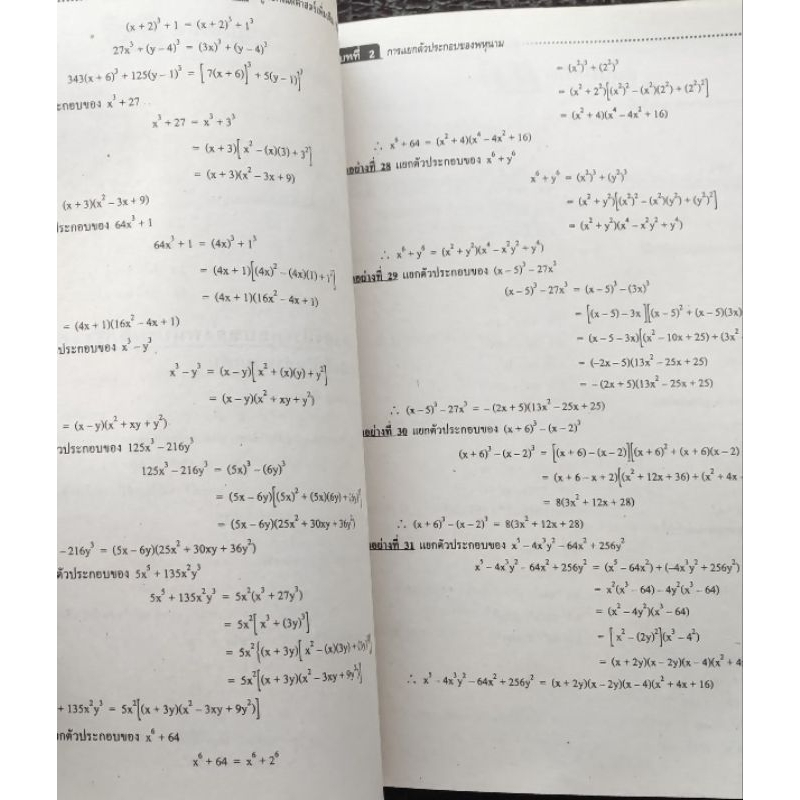 (x + 2)³ + 1 = (x + 2)³ + 1³
27x³ + (y – 4)³ = (3x)³ + (y – 4)³
343(x + 6)³ + 125(y – 1)³ = [7(x + 6)]³ + 5(y – 1)]³
ะกอบของ x³ + 27
x³ + 27 = x³ + 3³
= (x + 3)[x² – (x)(3) + 3²]
= (x + 3)(x² – 3x + 9)
(x + 3)(x² – 3x + 9)
ระกอบของ 64x³ + 1
64x³ + 1 = (4x)³ + 1³
= (4x + 1)[(4x)² – (4x)(1) + 1²]
= (4x + 1)(16x² – 4x + 1)
= (4x + 1)(16x² – 4x + 1)
ประกอบของ x³ – y³
x³ – y³ = (x – y)[x² + (x)(y) + y²]
= (x – y)(x² + xy + y²)
= (x – y)(x² + xy + y²)
วประกอบของ 125x³ – 216y³
125x³ – 216y³ = (5x)³ – (6y)³
= (5x – 6y)[(5x)² + (5x)(6y) + (6y)²]
= (5x – 6y)(25x² + 30xy + 36y²)
– 216y³ = (5x – 6y)(25x² + 30xy + 36y²)
ตัวประกอบของ 5x⁵ + 135x²y³
5x⁵ + 135x²y³ = 5x²(x³ + 27y³)
= 5x²[x³ + (3y)³]
= 5x²{(x + 3y)[x² – (x)(3y) + (3y)²]
= 5x²[(x + 3y)(x² – 3xy + 9y²)]
+ 135x²y³ = 5x²[(x + 3y)(x² – 3xy + 9y²)]
ยกตัวประกอบของ x⁶ + 64
x⁶ + 64 = x⁶ + 2⁶
บทที่ 2 การแยกตัวประกอบของพหุนาม
= (x²)³ + (2²)³
= (x² + 2²)[(x²)² – (x²)(2²) + (2²)²]
= (x² + 4)(x⁴ – 4x² + 16)
∴ x⁶ + 64 = (x² + 4)(x⁴ – 4x² + 16)
อย่างที่ 28 แยกตัวประกอบของ x⁶ + y⁶
x⁶ + y⁶ = (x²)³ + (y²)³
= (x² + y²)[(x²)² – (x²)(y²) + (y²)²]
= (x² + y²)(x⁴ – x²y² + y⁴)
∴ x⁶ + y⁶ = (x² + y²)(x⁴ – x²y² + y⁴)
อย่างที่ 29 แยกตัวประกอบของ (x – 5)³ – 27x³
(x – 5)³ – 27x³ = (x – 5)³ – (3x)³
= [(x – 5) – 3x][(x – 5)² + (x – 5)(3x)
= (x – 5 – 3x)[(x² – 10x + 25) + (3x²
= (-2x – 5)(13x² – 25x + 25)
= – (2x + 5)(13x² – 25x + 25)
∴ (x – 5)³ – 27x³ = – (2x + 5)(13x² – 25x + 25)
อย่างที่ 30 แยกตัวประกอบของ (x + 6)³ – (x – 2)³
(x + 6)³ – (x – 2)³ = [(x + 6) – (x – 2)][(x + 6)² + (x + 6)(x – 2)
= (x + 6 – x + 2)[(x² + 12x + 36) + (x² + 4x
= 8(3x² + 12x + 28)
∴ (x + 6)³ – (x – 2)³ = 8(3x² + 12x + 28)
อย่างที่ 31 แยกตัวประกอบของ x⁵ – 4x³y² – 64x² + 256y²
x⁵ – 4x³y² – 64x² + 256y² = (x⁵ – 64x²) + (–4x³y² + 256y²)
= x²(x³ – 64) – 4y²(x³ – 64)
= (x² – 4y²)(x³ – 64)
= [x² – (2y)²](x³ – 4³)
= (x + 2y)(x – 2y)(x – 4)(x² + 4
∴ x⁵ – 4x³y² – 64x² + 256y² = (x + 2y)(x – 2y)(x – 4)(x² + 4x + 16)